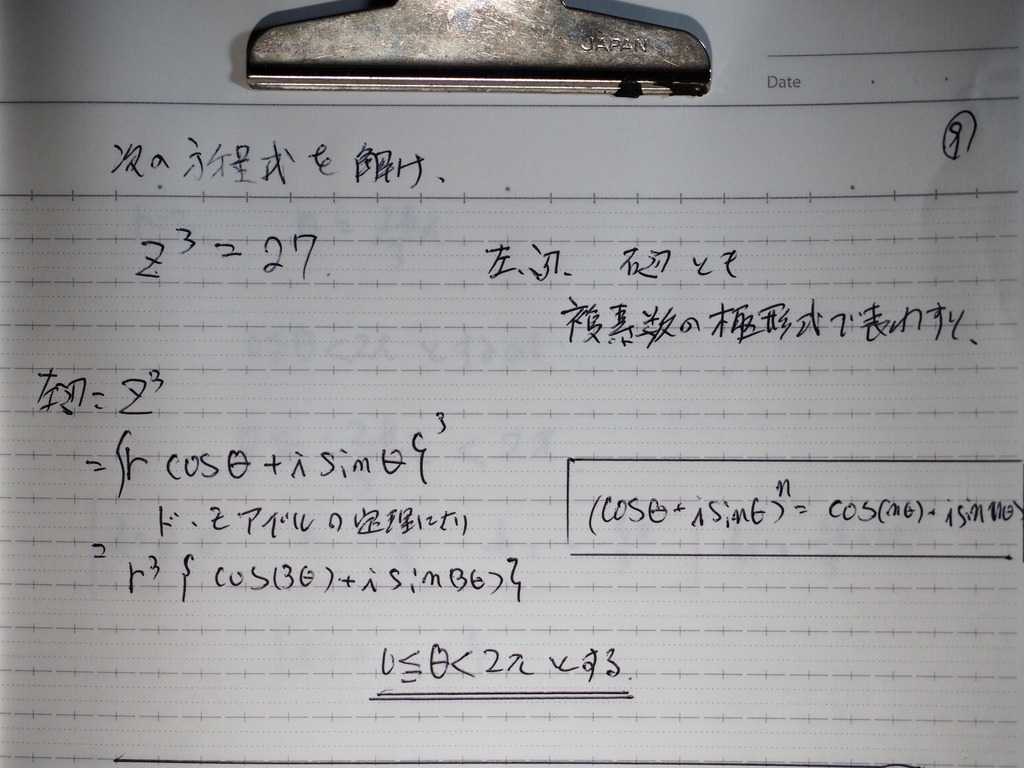 JAPAN
Date
⑨
次の方程式を解け、
z³ = 27.
左辺、右辺とも
複素数の極形式で表わすり、
左辺 = z³
= {r cosθ + i sinθ}³
ド・モアブルの定理により
(cosθ + i sinθ)ⁿ = cos(nθ) + i sin nθ)
= r³ { cos(3θ) + i sin(3θ) }
0 ≦ θ < 2π とする.